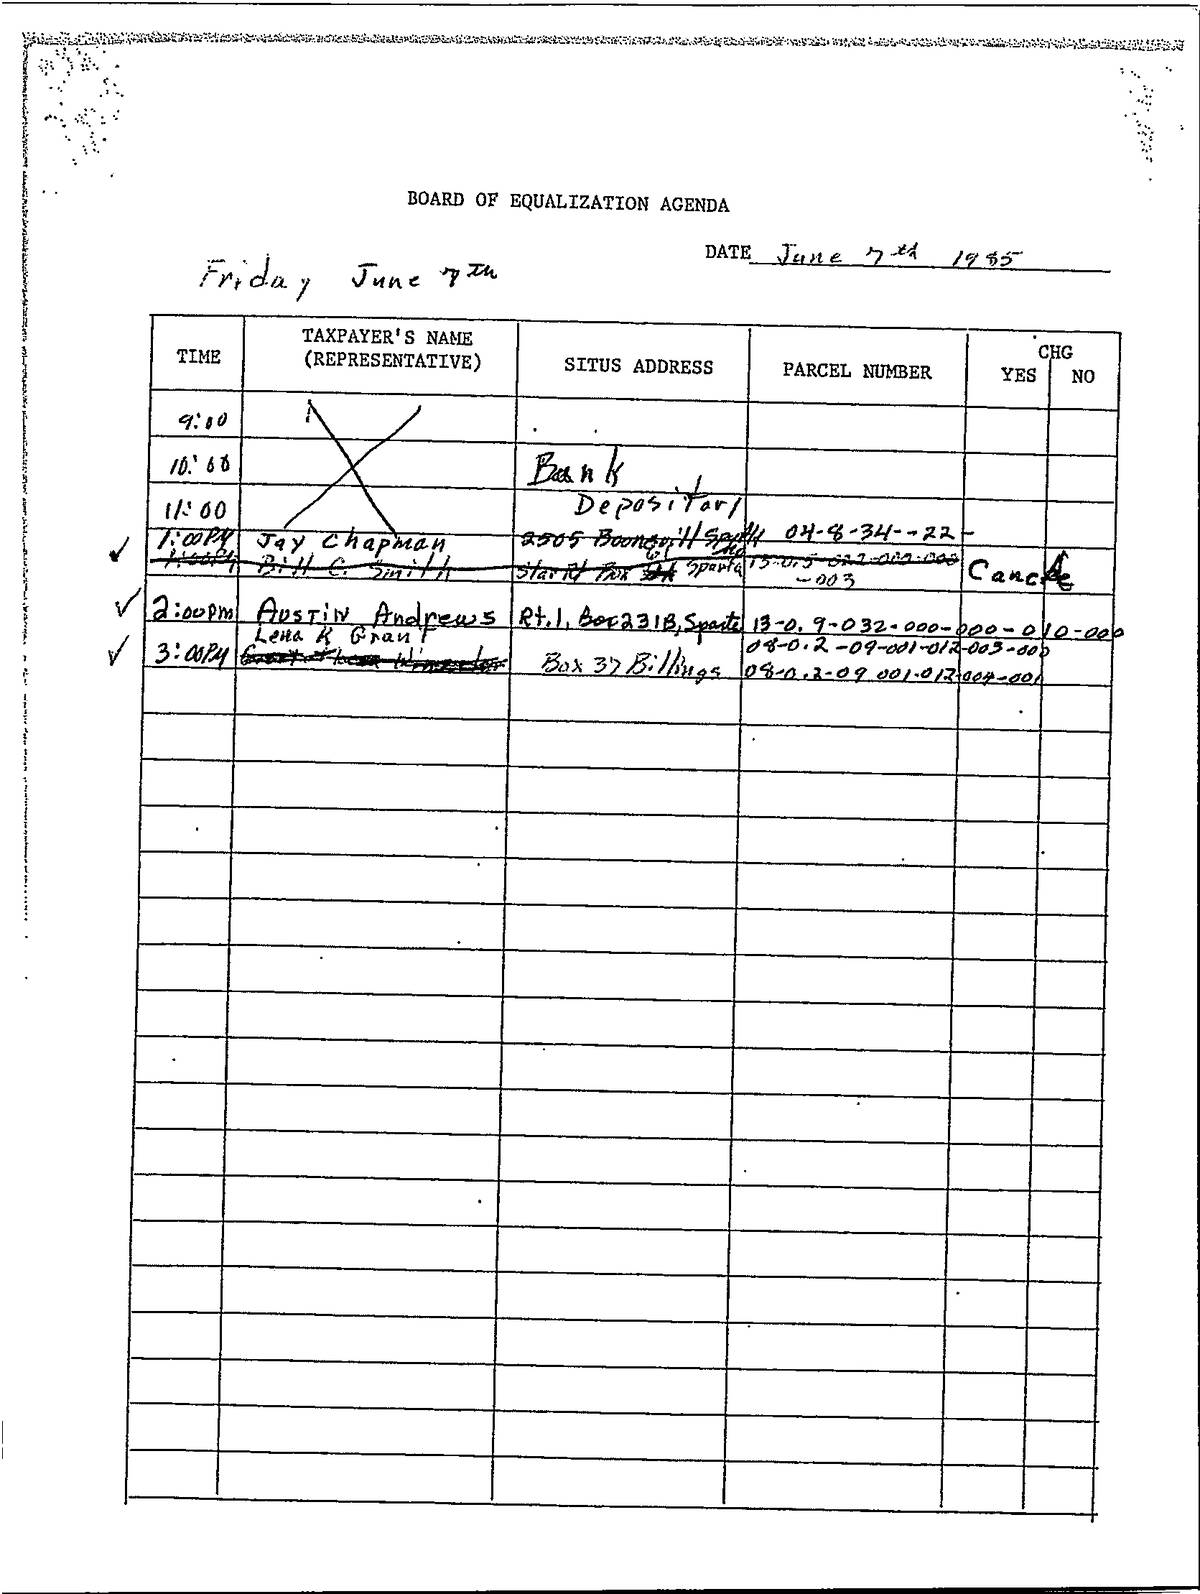 BOARD OF EQUALIZATION AGENDA
DATE June 7th 1985
Friday June 7th
TIME TAXPAYER'S NAME (REPRESENTATIVE) SITUS ADDRESS PARCEL NUMBER CHG YES NO
9:00
10:00 Bank
11:00 Depository
1:00PM Jay Chapman 2505 04-8-34--22-
1:00PM Bill C. Smith Star Rt Box Sparta -003 Cancel
2:00PM Austin Andrews Rt.1, Box 231B, Sparta 13-0.9-032-000-000-010-000
Lena K Grant 08-0.2-09-001-012-003-000
3:00PM Box 37 Billings 08-0.2-09 001-012-004-001